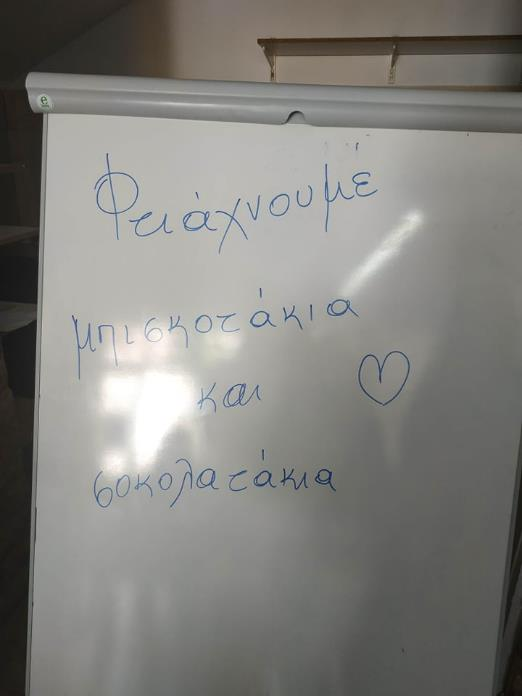 Φτιάχνουμε
μπισκοτάκια
και
σοκολατάκια